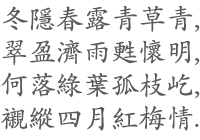 冬隱春露青草青,
翠盈濟雨甦懷明,
何落綠葉孤枝屹,
襯縱四月紅梅情.